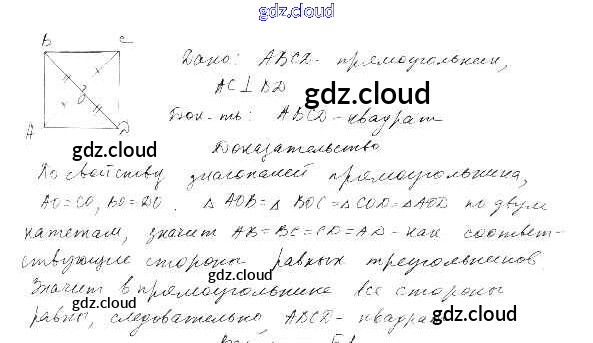 gdz.cloud
B C
Дано: ABCD - прямоугольник,
AC⊥BD
gdz.cloud
Док-ть: ABCD - квадрат
A D
gdz.cloud
Доказательство
gdz.cloud
По свойству диагоналей прямоугольника,
AO=CO, BO=DO. △AOB=△BOC=△COD=△AOD по двум
катетам, значит AB=BC=CD=AD - как соответ-
ствующие стороны равных треугольников
gdz.cloud
Значит в прямоугольнике все стороны
равны, следовательно, ABCD - квадрат
gdz.cloud